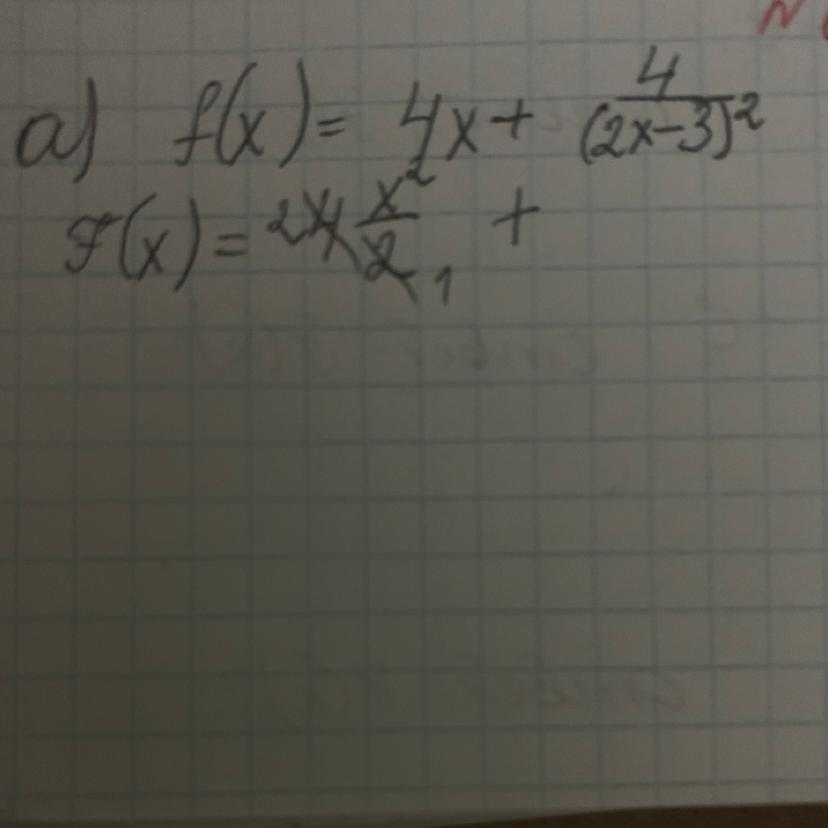 а) f(x) = 4x + 4/(2x-3)²
F(x) = ²4 x²/2₁ +